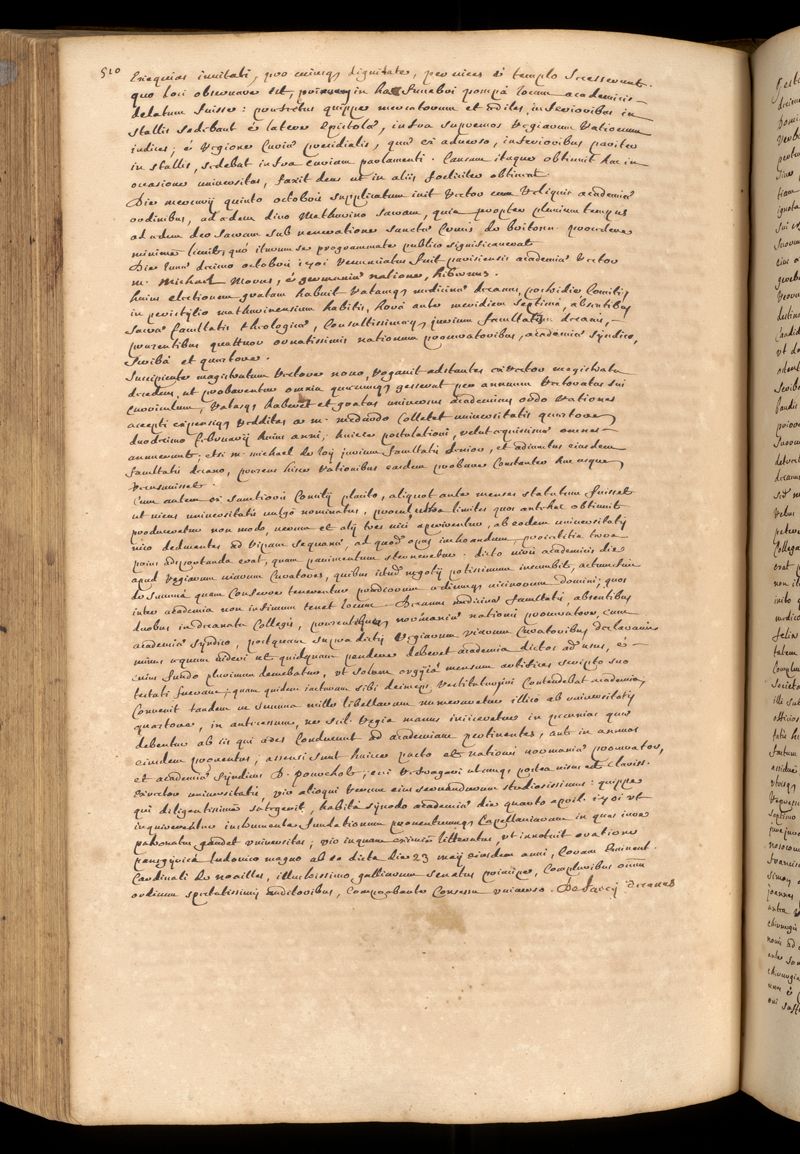 510
Exequias invitati, pro cuiusq dignitate, per vices è templo secesserunt.
quo loci observare est, in hac funebri pompâ locum academicis
delatum fuisse : quippe mercatorum et ædiles, inferioribus in
stallis sedebant è latere Epistolæ, infra supremos regiarum rationum
iudices; è regione curiæ præsidialis, quæ ex adverso, inferioribus pariter
in stallis, sedebat infra curiam parlamenti. Causam itaque obtinuit hac in
occasione universitas, faxit deus ut in aliis feliciter obtineat.
Die mercurij quinto octobris supplicatum ivit Rector cum reliquis academiæ
ordinibus, ad ædem divo Mathurino sacram, quia propter pluvium tempus
ad ædem deo sacram sub nomine sanctæ Crucis de procedere
minime licuit, quò iturum se programmate publico significaverat.
Die lunæ decimo octobris 1701 renunciatus fuit parisiensis academiæ Rector
m. Michael Morus, è germaniæ natione, hibernus.
huius electionem gratam habuit ratamq medicinæ decanus, præside comitiis
in peristylio mathurinensium habitis, horâ ante meridiem septimâ, absentibus
sacræ facultatis theologiæ, consultissimæq jurium facultatis decanis,
præsentibus quattuor ornatissimis nationum procuratoribus, academiæ syndico,
scribâ et quæstore.
Suscipiente magistratum Rectore novo, rogavit adstantes exrector magistratu
decedens, ut probarentur omnia quæcumq gesserat per annum rectoratus sui
curriculum, ratasq haberet et gratas universus academicus ordo rationes
accepti expensiq redditas a m. medardo Colletet universitatis quæstore
duodecimo februarij huius anni; huicce postulationi, velut æquissimæ omnes
annuerunt; etsi m. michael de loy jurium facultatis senior, et adiunctus eiusdem
facultatis decano, præsens hisce rationibus easdem probare constanter hucusque
recusavisset.
Cum autem ex sanctioris Consilij placito, aliquot ante menses statutum fuisset
ut vicus universitatis vulgò nominatus, procul ultra limites quos antehac obtinuit
produceretur non modo, verum et alij tres vici aperirentur, ab eodem universitatis
vico deducentes ad ripam sequanæ, ad quod opus inchoandum,
erat, quam pavimentum sterneretur. dicto viri academicis die
apud regiarum viarum curatores, quibus istud negotij potissimum incumbit, actum fuit
de summâ quam conferre tenerentur prædiorum adiumq vicinorum domini; quos
inter academia non infimum tenet locum. Decanus medicinæ facultatis, absentibus
duobus in decanatu collegis, præsentibusq normaniæ nationis procuratore, cum
academiæ syndico, postquam supra dictis regiarum viarum curatoribus declaravit
minus æquum videri ut quidquam pendere deberet academia dictos ad usus, è
cuius fundo plurimum demebatur, ut solam orgyiæ mensum artifices scripto suo
testati fuerant; quam quidem iacturam sibi deinceps restitutumiri contendebat academia,
Convenit tandem ut summa mille libellarum numeraretur illico ab universitatis
quæstore, in antecessum, ne scil. regia manus iniiceretur in pecunias quæ
debentur ab iis qui ædes conducunt ad academiam pertinentes, aut in annuos
eiusdem proventus; assensi sunt huicce pacto et nationis normaniæ procurator,
et academiæ syndicus D. pourchot; cui refragari utcumq postea visus est clariss.
Exrector universitatis, vir alioqui rerum eius servandarum studiosissimus: quippe
qui diligentissime sategerit, habitâ synodo academiæ die quarto april. 1701 ut
inquirerentur instrumenta fundationum proventuumq Capellaniarum in quas iure
patronatus gaudet universitas; vir inquam eximiè litteratus, ut innotuit oratione
panegyricâ ludovico magno ab eo dicta die 23 maij eiusdem anni, coram Eminent.
Cardinali de noailles, illustrissimo galliarum senatus principe, compluribus omni
ordinum spectatissimis auditoribus, comprobante consessu universo. De farcy decanus